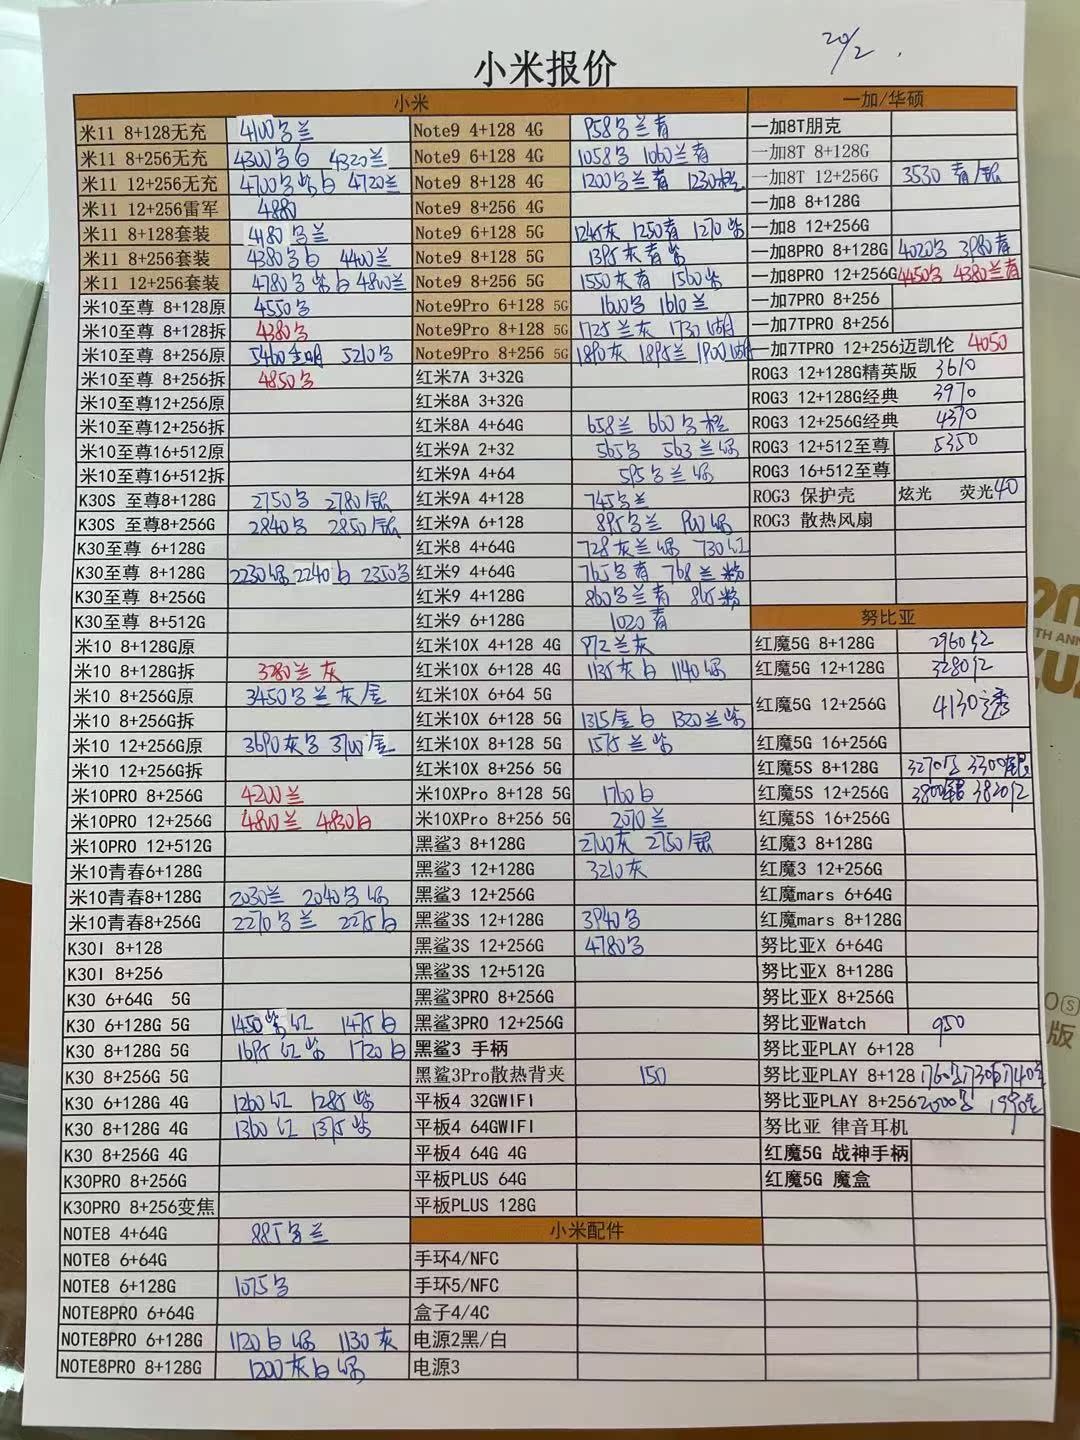 20/2
小米报价
小米
一加/华硕
米11 8+128无充 4100 兰
米11 8+256无充 4300 白 4320兰
米11 12+256无充 4700 紫白 4720兰
米11 12+256雷军 4880
米11 8+128套装 4180 兰
米11 8+256套装 4380 白 4400兰
米11 12+256套装 4780 紫白 4800兰
米10至尊 8+128原 4550
米10至尊 8+128拆 4380
米10至尊 8+256原 5400 透明 5210
米10至尊 8+256拆 4850
米10至尊12+256原
米10至尊12+256拆
米10至尊16+512原
米10至尊16+512拆
K30S 至尊8+128G 2750 2780银
K30S 至尊8+256G 2840 2850银
K30至尊 6+128G
K30至尊 8+128G 2230绿 2240白 2350
K30至尊 8+256G
K30至尊 8+512G
米10 8+128G原
米10 8+128G拆 3280兰 灰
米10 8+256G原 3450 兰灰/金
米10 8+256G拆
米10 12+256G原 3690灰 3700金
米10 12+256G拆
米10PRO 8+256G 4200兰
米10PRO 12+256G 4800兰 4830白
米10PRO 12+512G
米10青春6+128G
米10青春8+128G 2030兰 2040 绿
米10青春8+256G 2270 兰 2275白
K30I 8+128
K30I 8+256
K30 6+64G 5G
K30 6+128G 5G 1450紫红 1475白
K30 8+128G 5G 1695红紫 1720白
K30 8+256G 5G
K30 6+128G 4G 1260红 1285紫
K30 8+128G 4G 1360红 1375紫
K30 8+256G 4G
K30PRO 8+256G
K30PRO 8+256变焦
NOTE8 4+64G 885 兰
NOTE8 6+64G
NOTE8 6+128G 1075
NOTE8PRO 6+64G
NOTE8PRO 6+128G 1120白绿 1130灰
NOTE8PRO 8+128G 1200灰白绿
Note9 4+128 4G 958 兰青
Note9 6+128 4G 1058 1060兰青
Note9 8+128 4G 1200 兰青 1230橙
Note9 8+256 4G
Note9 6+128 5G 1245灰 1250青 1270紫
Note9 8+128 5G 1395灰青紫
Note9 8+256 5G 1550灰青 1560紫
Note9Pro 6+128 5G 1600 1610兰
Note9Pro 8+128 5G 1725兰灰 1730湖
Note9Pro 8+256 5G 1890灰 1895兰 1900湖
红米7A 3+32G
红米8A 3+32G
红米8A 4+64G 658兰 660 橙
红米9A 2+32 565 563兰绿
红米9A 4+64 595 兰绿
红米9A 4+128 745 兰
红米9A 6+128 895 兰 900绿
红米8 4+64G 728灰兰绿 730红
红米9 4+64G 765 青 768兰粉
红米9 4+128G 860 兰青 865粉
红米9 6+128G 1020青
红米10X 4+128 4G 972兰灰
红米10X 6+128 4G 1135灰白 1140绿
红米10X 6+64 5G
红米10X 6+128 5G 1315金白 1320兰紫
红米10X 8+128 5G 1575兰紫
红米10X 8+256 5G
米10XPro 8+128 5G 1760白
米10XPro 8+256 5G 2070兰
黑鲨3 8+128G 2700灰 2750银
黑鲨3 12+128G 3210灰
黑鲨3 12+256G
黑鲨3S 12+128G 3940
黑鲨3S 12+256G 4780
黑鲨3S 12+512G
黑鲨3PRO 8+256G
黑鲨3PRO 12+256G
黑鲨3 手柄
黑鲨3Pro散热背夹 150
平板4 32GWIFI
平板4 64GWIFI
平板4 64G 4G
平板PLUS 64G
平板PLUS 128G
小米配件
手环4/NFC
手环5/NFC
盒子4/4C
电源2黑/白
电源3
一加8T朋克
一加8T 8+128G
一加8T 12+256G 3530 青/银
一加8 8+128G
一加8 12+256G
一加8PRO 8+128G 4020 3980青
一加8PRO 12+256G 4450 4380兰青
一加7PRO 8+256
一加7TPRO 8+256
一加7TPRO 12+256迈凯伦 4050
ROG3 12+128G精英版 3610
ROG3 12+128G经典 3970
ROG3 12+256G经典 4370
ROG3 12+512至尊 5350
ROG3 16+512至尊
ROG3 保护壳 炫光 荧光40
ROG3 散热风扇
努比亚
红魔5G 8+128G 2960红
红魔5G 12+128G 3280红
红魔5G 12+256G 4130透
红魔5G 16+256G
红魔5S 8+128G 3270 3300银
红魔5S 12+256G 3800银 3820红
红魔5S 16+256G
红魔3 8+128G
红魔3 12+256G
红魔mars 6+64G
红魔mars 8+128G
努比亚X 6+64G
努比亚X 8+128G
努比亚X 8+256G
努比亚Watch 950
努比亚PLAY 6+128
努比亚PLAY 8+128 1760 1730白 1740
努比亚PLAY 8+256 2000 1990
努比亚 律音耳机
红魔5G 战神手柄
红魔5G 魔盒
TH ANN
版